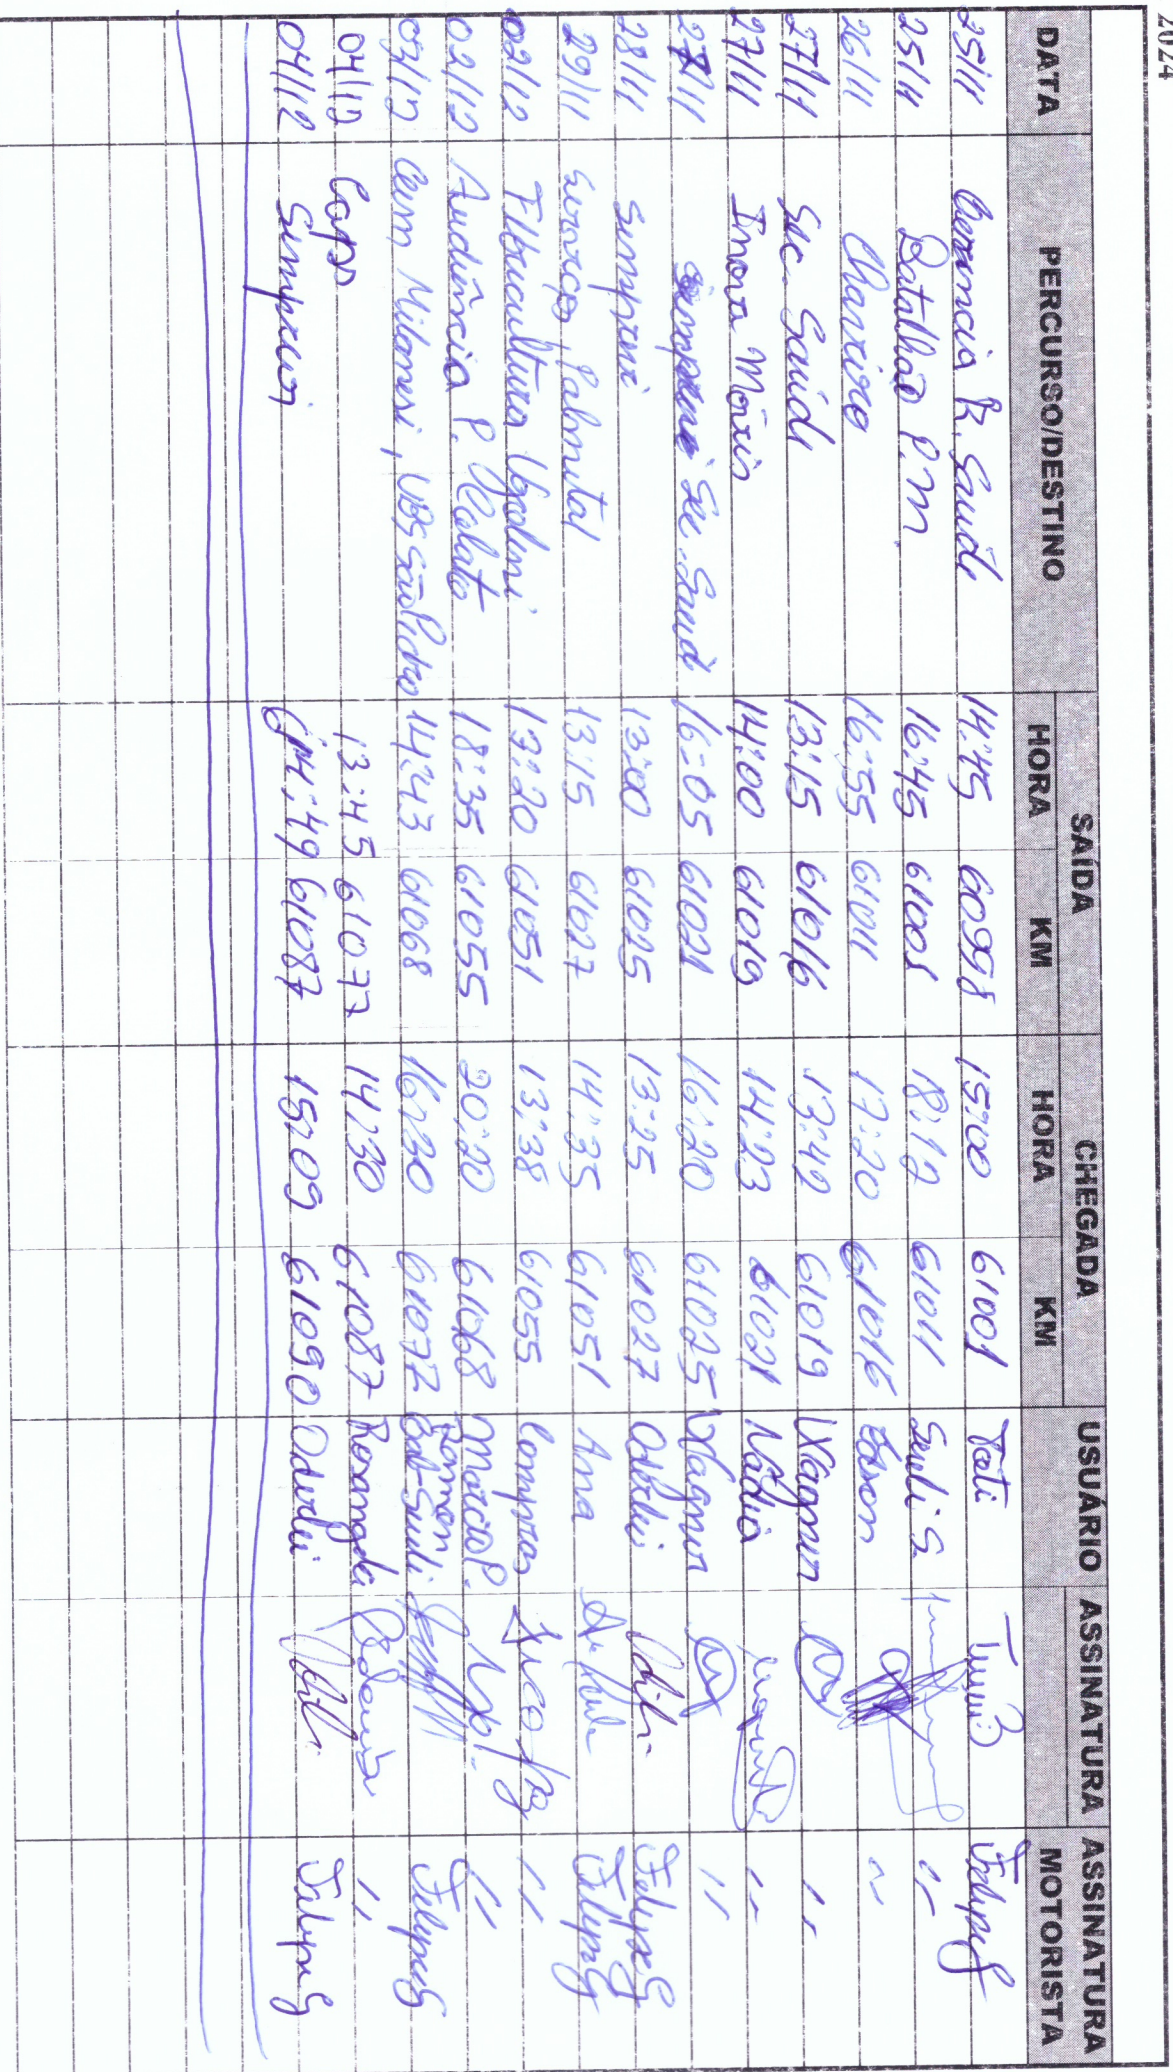 2024
DATA PERCURSO/DESTINO SAÍDA CHEGADA USUÁRIO ASSINATURA ASSINATURA MOTORISTA
HORA KM HORA KM
25/11 R. Saúde 14:45 60998 15:00 61001 Tati Felipe G
25/11 Batalhão P.M. 16:45 61001 18:12 61011 Sueli S. "
26/11 Chaveiro 16:55 61011 17:20 61016 "
27/11 Sec. Saúde 13:15 61016 13:42 61019 Wagner "
27/11 Inova 14:00 61019 14:23 61021 Nádia "
27/11 Sec. Saúde 16:05 61021 16:20 61025 Wagner "
28/11 Semprevi 13:00 61025 13:25 61027 Odirlei Felipe G
29/11 Serviço Palmital 13:15 61027 14:35 61051 Ana Felipe G
02/12 Fl. 13:20 61051 13:38 61055 Compras "
02/12 Audiência P. 18:35 61055 20:20 61068 Márcio P. "
03/12 Cem Milanesi, UBS São Pedro 14:43 61068 16:30 61077 Felipe G
04/12 Caps 13:45 61077 14:30 61087 Rosangela "
04/12 Semprevi 14:49 61087 15:09 61090 Odirlei Felipe G